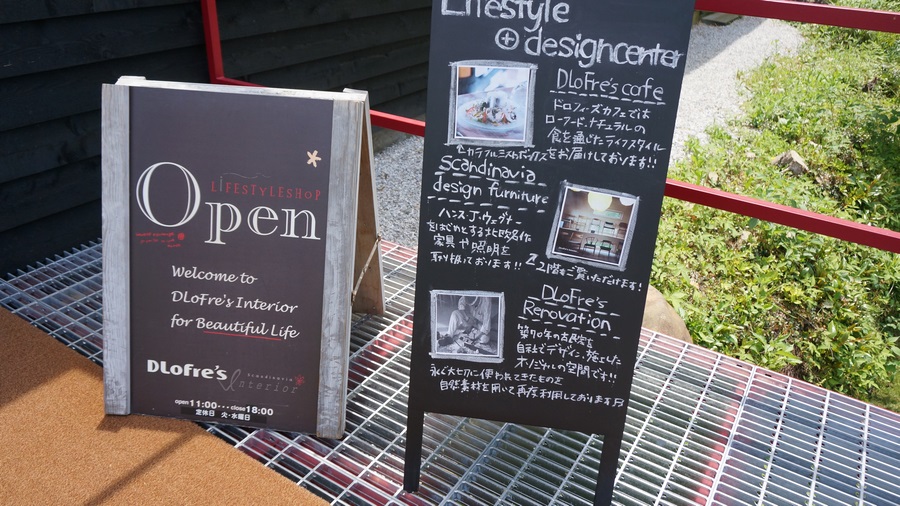 LiFESTYLESHOP
Open
Welcome to
DLoFre's Interior
for Beautiful Life
DLoFre's
Interior
open 11:00・・・close 18:00
定休日 火・水曜日
Lifestyle
⊕ designcenter
DLoFre's cafe
ドロフィーズカフェでは
ローフード、ナチュラルの
食を通じたライフスタイル
をお届けしております!!
Scandinavia
design furniture
ハンス・J・ウェグナー
をはじめとする北欧名作
家具や照明を
取り扱っております!!
2階もご覧いただけます!
DLoFre's
Renovation
築70年の古民家を
自社でデザイン、施工した
オリジナルの空間です!!
永く大切に使われてきたものを
自然素材を用いて再存利用しております